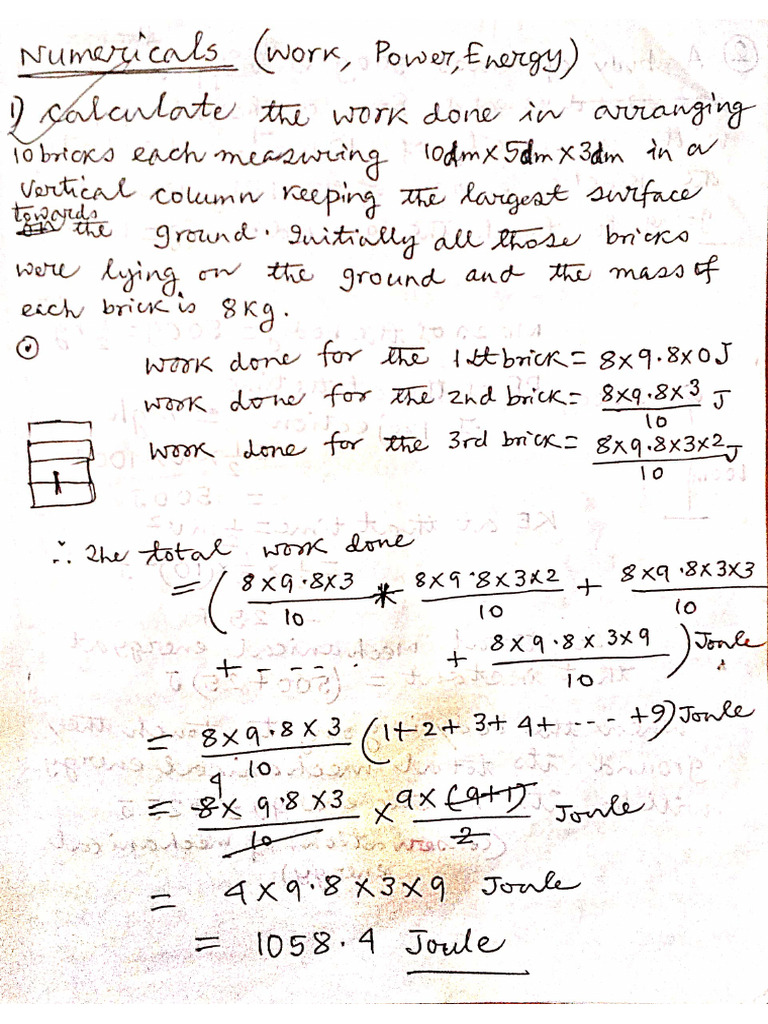 Numericals (Work, Power, Energy)
1) Calculate the work done in arranging
10 bricks each measuring 10dm×5dm×3dm in a
vertical column keeping the largest surface
towards
the ground. Initially all those bricks
were lying on the ground and the mass of
each brick is 8Kg.
work done for the 1st brick = 8×9.8×0J
work done for the 2nd brick = 8×9.8×3/10 J
work done for the 3rd brick = 8×9.8×3×2/10 J
1
∴ The total work done
= (8×9.8×3/10 + 8×9.8×3×2/10 + 8×9.8×3×3/10
+ - - - - . + 8×9.8×3×9/10) Joule
= 8×9.8×3/10 (1+2+3+4+ --- +9) Joule
4
= 8×9.8×3/10 × 9×(9+1)/2 Joule
= 4×9.8×3×9 Joule
= 1058.4 Joule